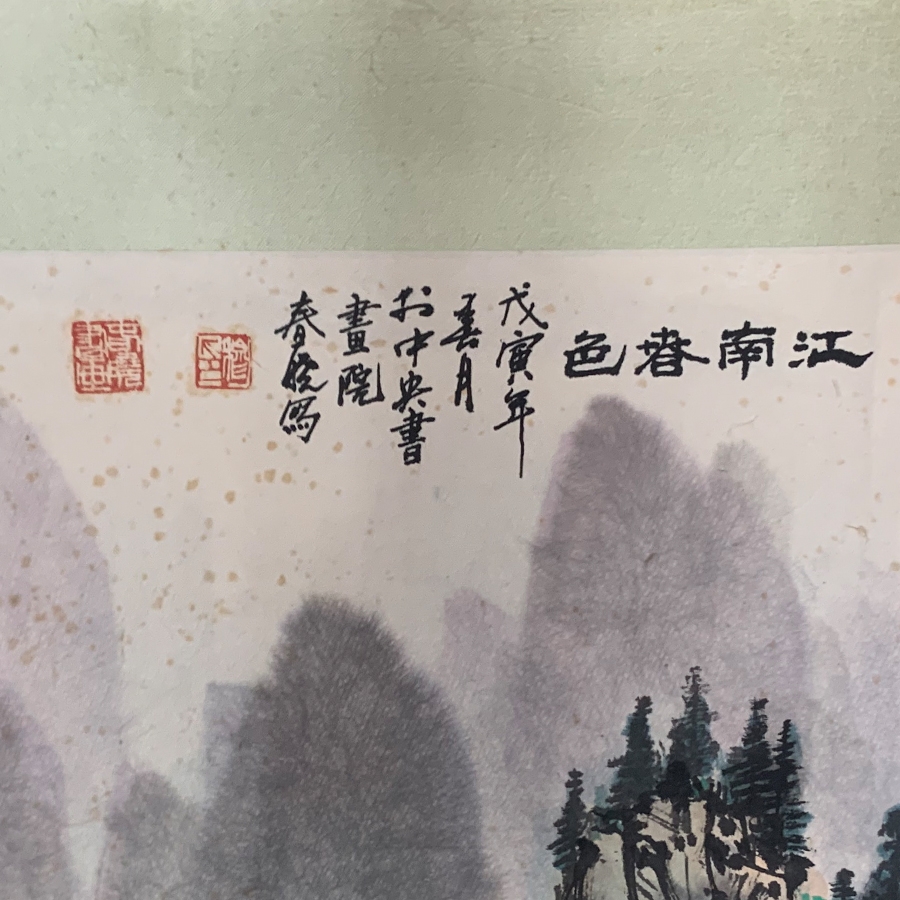 江南春色
戊寅年
春月
於中央書
畫院
春曉寫